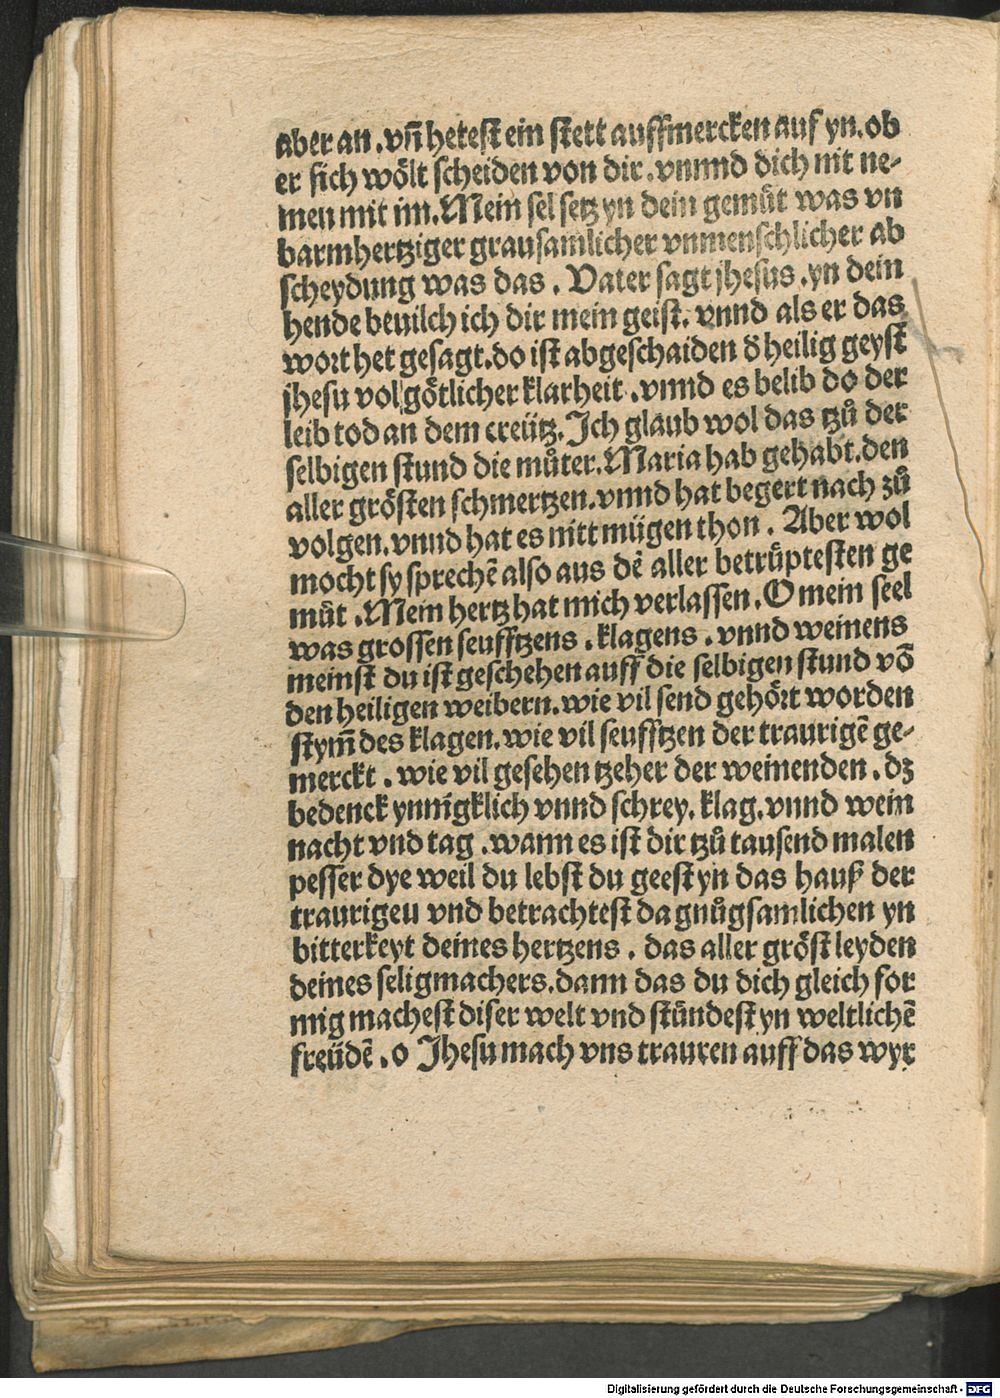 aber an. vñ hetest ein stett auffmercken auf yn. ob
er sich wölt scheiden von dir. vnnnd dich nit ne-
men mit im. Mein sel setz yn dein gemüt was vn
barmhertziger grausamlicher vnmenschlicher ab
scheydung was das. Vater sagt jhesus. yn dein
hende beuilch ich dir mein geist. vnnd als er das
wort het gesagt. do ist abgeschaiden d̕ heilig geyst
jhesu vol götlicher klarheit. vnnd es belib do der
leib tod an dem creütz. Ich glaub wol das tzů der
selbigen stund die můter. Maria hab gehabt. den
aller grösten schmertzen. vnnd hat begert nach zů
volgen. vnnd hat es nitt mügen thon. Aber wol
mocht sy sprechē also aus dē aller betrüptesten ge
müt. Mein hertz hat mich verlassen. O mein seel
was grossen seufftzens. klagens. vnnd weinens
meinst du ist geschehen auff die selbigen stund võ
den heiligen weibern. wie vil send gehört worden
stym̄ des klagen. wie vil seufftzen der traurigē ge-
merckt. wie vil gesehen tzeher der weinenden. dz
bedenck ynnigklich vnnd schrey. klag. vnnd wein
nacht vnd tag. wann es ist dir tzů tausend malen
pesser dye weil du lebst du geest yn das hauß der
traurigeu vnd betrachtest da gnůgsamlichen yn
bitterkeyt deines hertzens. das aller gröst leyden
deines seligmachers. dann das du dich gleich for
mig machest diser welt vnd stündest yn weltlichē
freüdē. o Jhesu mach vns trauren auff das wyr
Digitalisierung gefördert durch die Deutsche Forschungsgemeinschaft - DFG